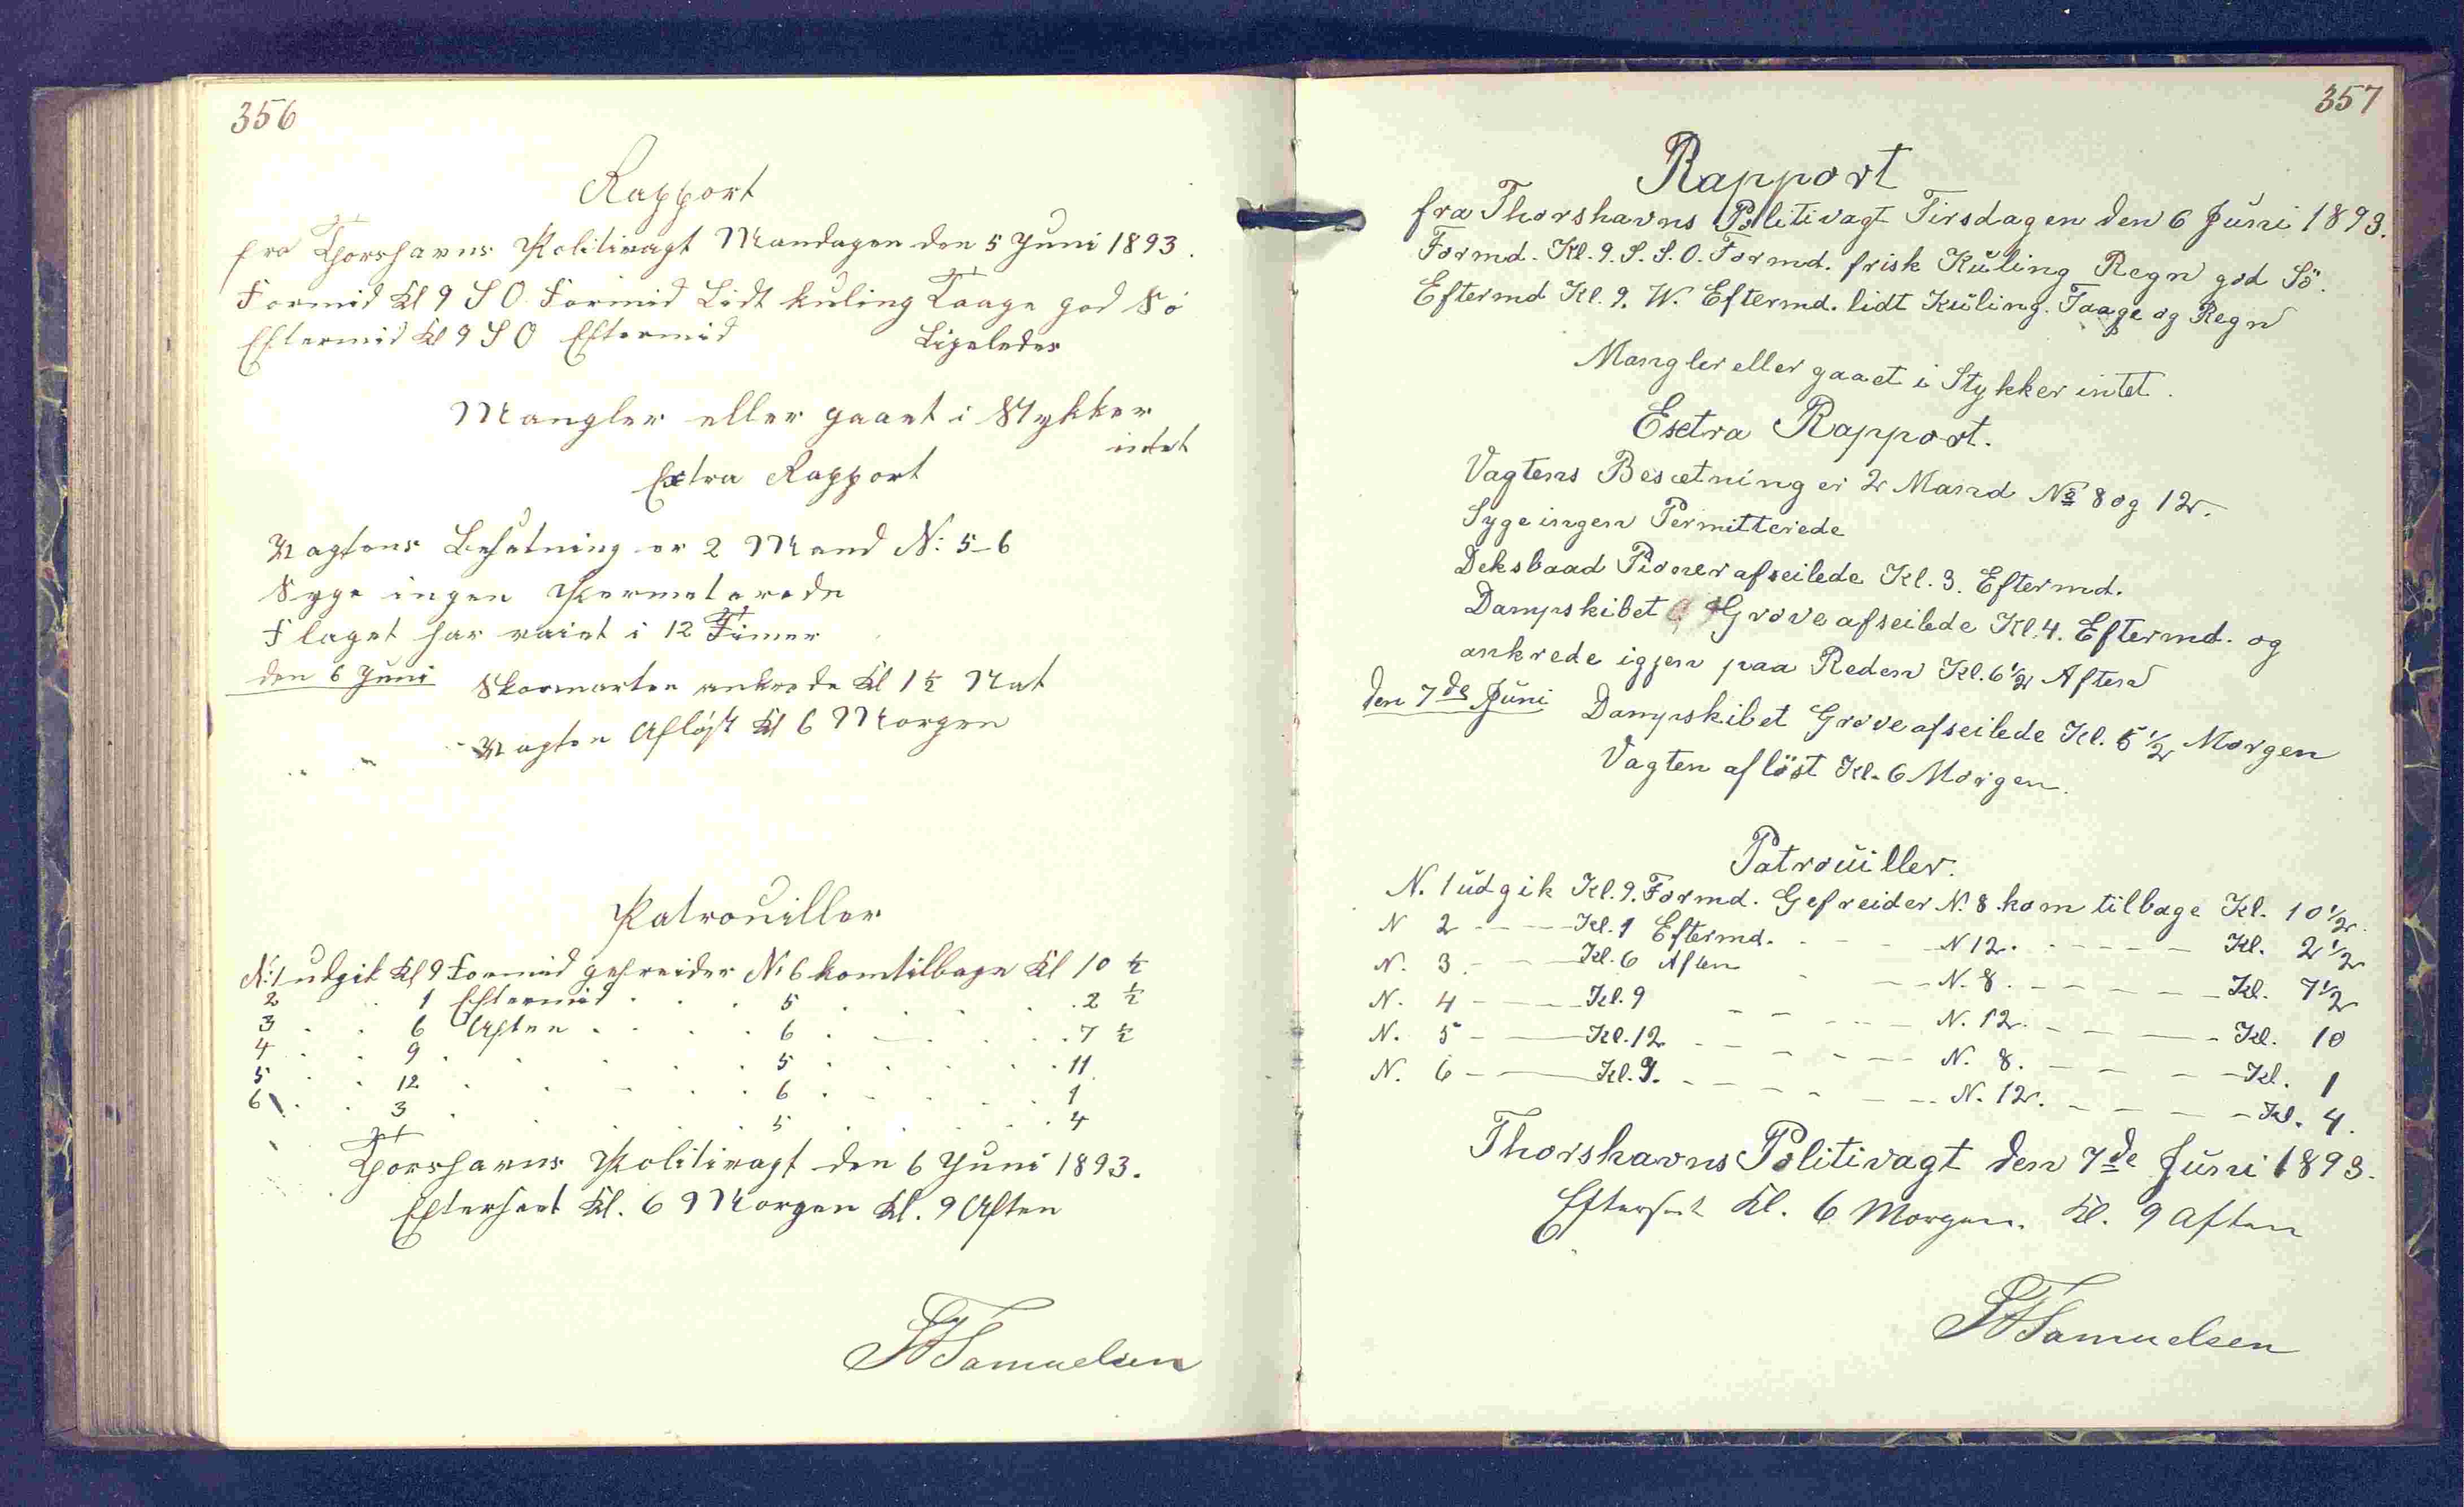 356
Rapport
fra Thorshavns Politivagt Mandagen den 5 Juni 1893.
Formid Kl 9 S O Formid Lidt kuling Taage god Sö
Eftermid Kl 9 S O Eftermid Ligeledes
Mangler eller gaaet i Stykker
intet
Extra Rapport
Vagtens Besætning er 2 Mand N: 5-6
Syge ingen Permeterede
Flaget har vaiet i 12 Timer
den 6 Juni ankrede Kl 1 1/2 Nat
Vagten Afløst Kl 6 Morgen
Patrouiller
N: 1 udgik Kl 9 Formid gefreider N: 6 kom tilbage Kl 10 1/2
2 . . 1 Eftermid . . . 5 . . . . 2 1/2
3 . . 6 Aften . . . . 6 . . . . 7 1/2
4 . . 9 . . . . . 5 . . . . 11
5 . . 12 . . . . . 6 . . . . 1
6 . . 3 . . . . . 5 . . . . 4
Thorshavns Politivagt den 6 Juni 1893.
Efterseet Kl. 6 Morgen Kl. 9 Aften
Samuelsen
357
Rapport
fra Thorshavns Politivagt Tirsdagen den 6 Juni 1893.
Formd. Kl. 9. S. S. O. Formd. frisk Kuling Regn god Sö.
Eftermd Kl. 9. W. Eftermd. lidt Kuling. Taage og Regn
Mangler eller gaaet i Stykker intet.
Esctra Rapport.
Vagtens Besætning er 2 Mand No 8 og 12.
Syge ingen Permitterede
Deksbaad Pioner afseilede Kl. 3. Eftermd.
Dampskibet Grove afseilede Kl. 4. Eftermd. og
ankrede igjen paa Reden Kl. 6 1/2 Aften
den 7de Juni Dampskibet Grove afseilede Kl. 5 1/2 Morgen
Vagten aflöst Kl. 6 Morgen.
Patrouiller.
N. 1 udgik Kl. 9. Formd. Gefreider N. 8 kom tilbage Kl. 10 1/2.
N 2 - - - Kl. 1 Eftermd. - - - N 12. - - - - Kl. 2 1/2
N. 3. - - - Kl. 6 Aften - - - N. 8. - - - - Kl. 7 1/2
N. 4 - - - Kl. 9 - - - - N. 12. - - - - Kl. 10
N. 5 - - - Kl. 12 - - - - N. 8. - - - - Kl. 1
N. 6 - - - Kl. 9. - - - - N. 12. - - - - Kl. 4.
Thorshavns Politivagt den 7de Juni 1893.
Efterset Kl. 6 Morgen. Kl. 9 Aften
Samuelsen